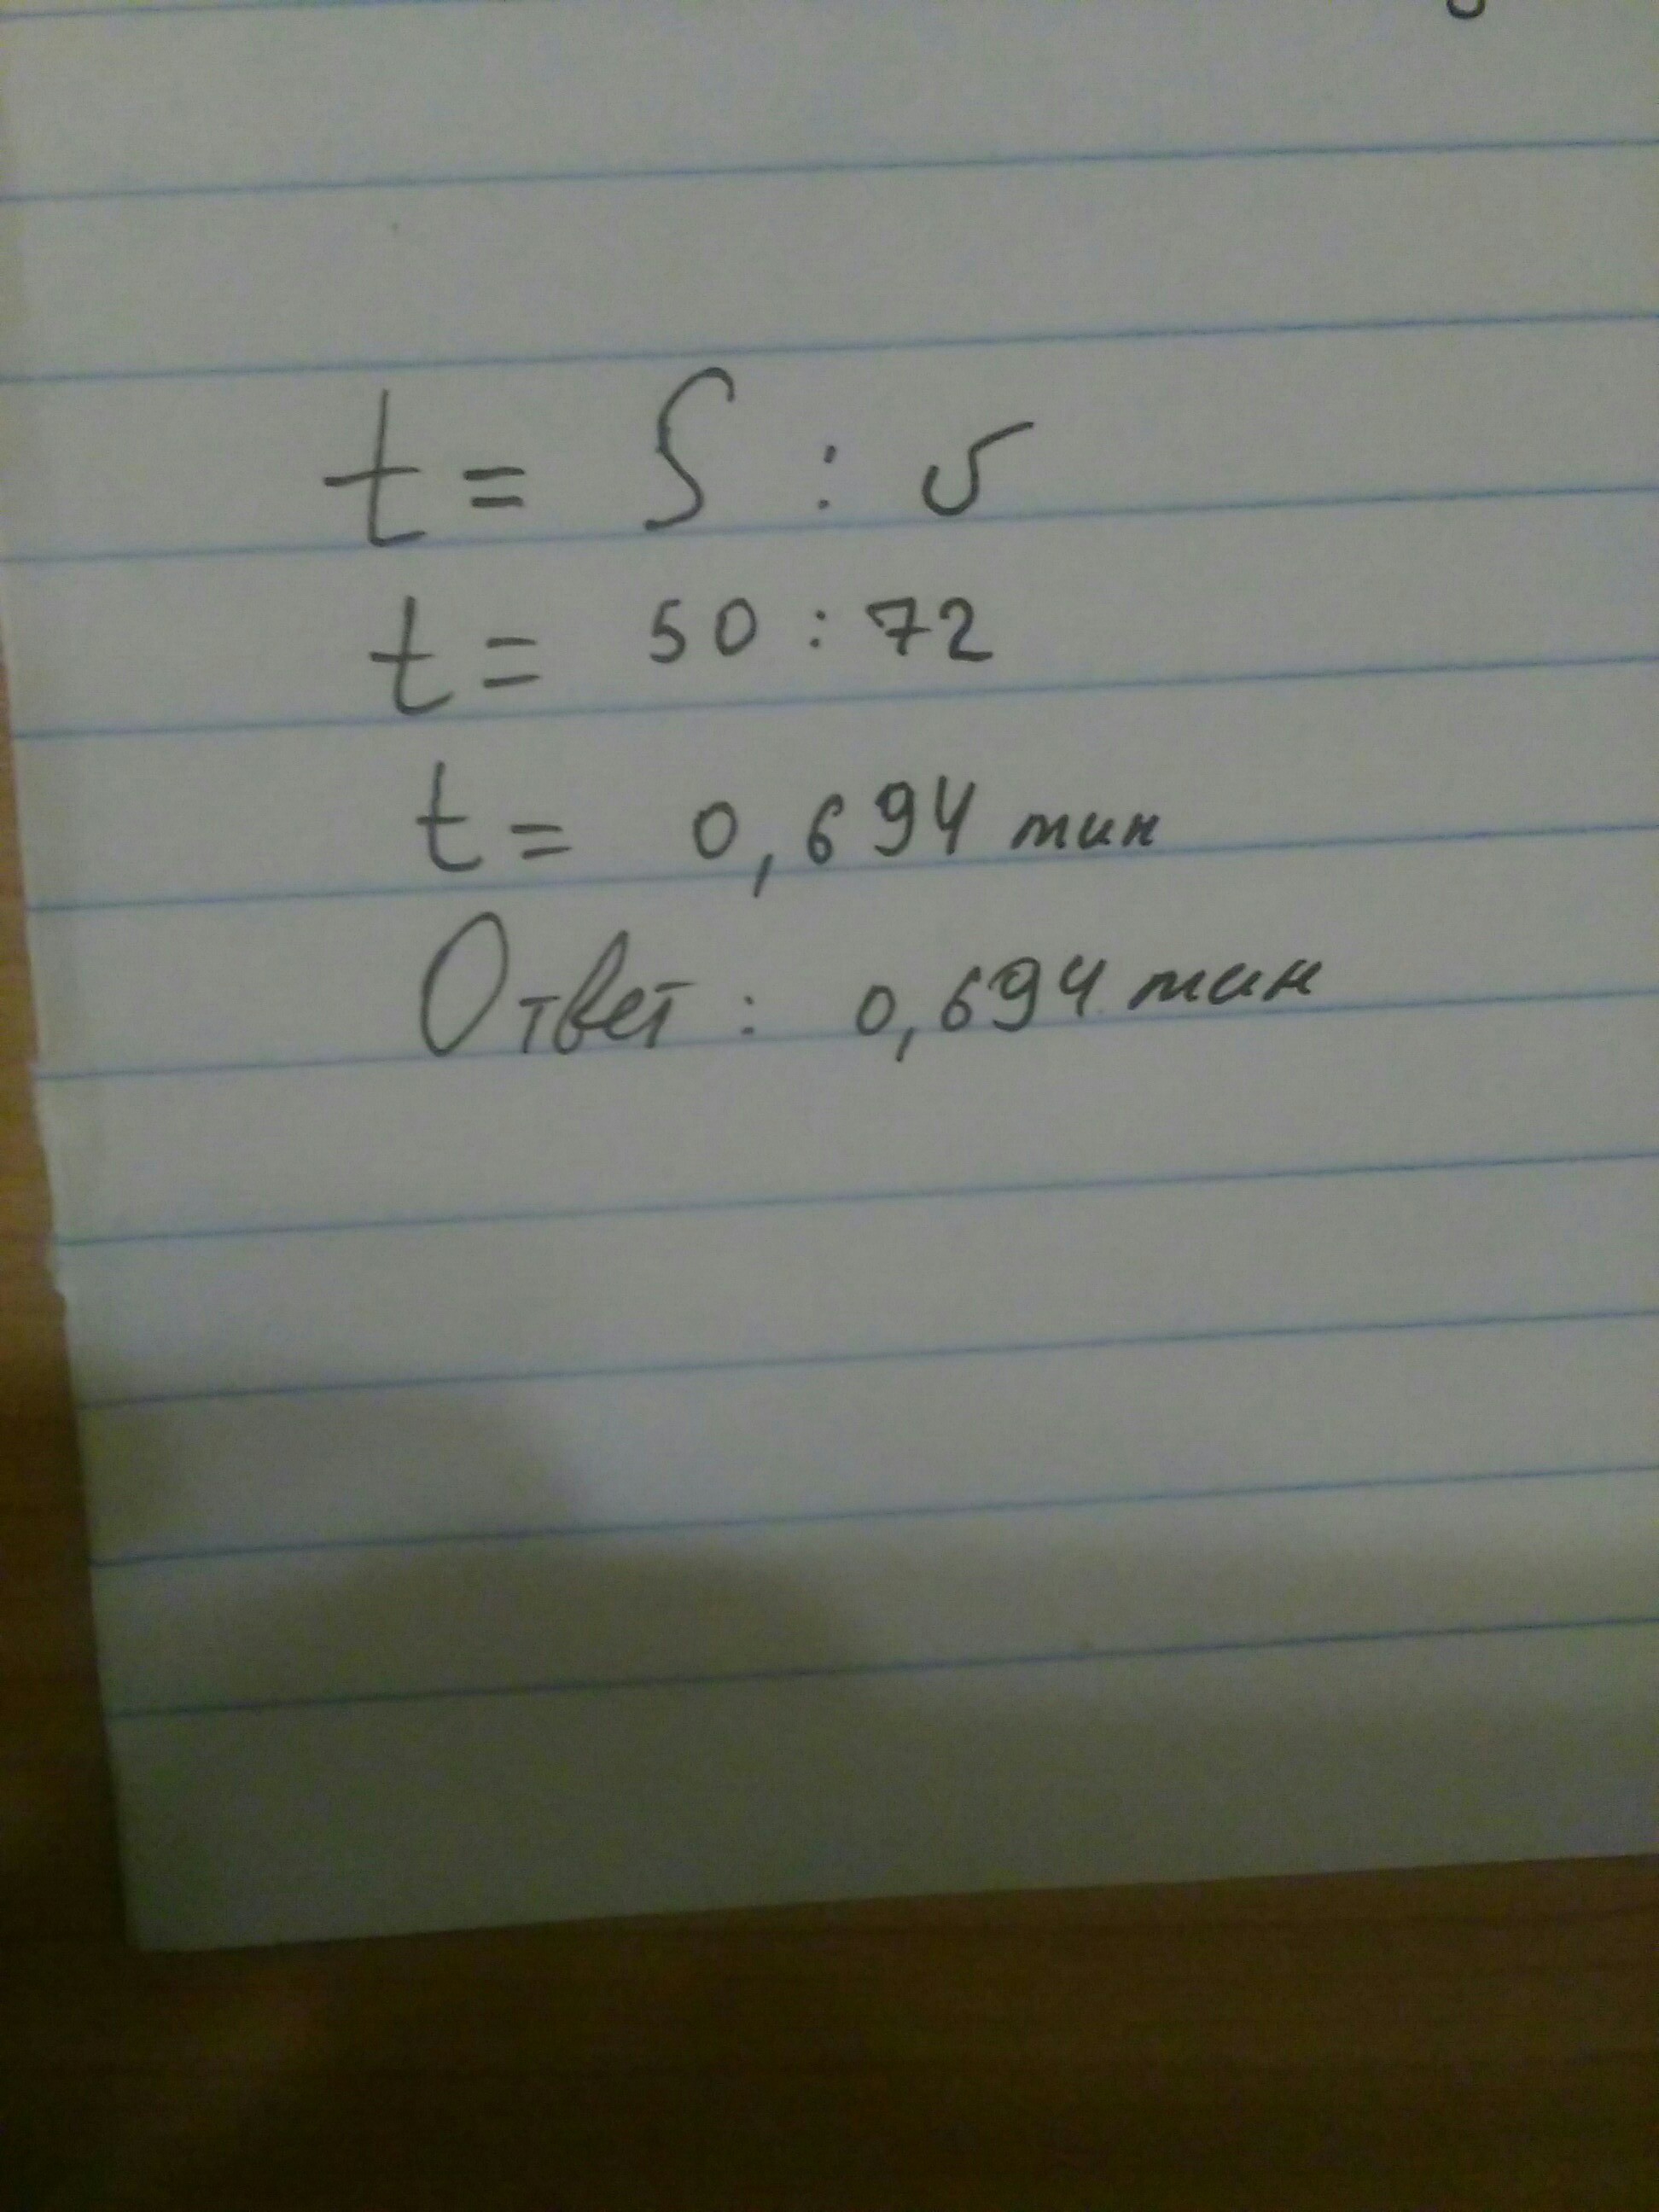 t = S : v
t = 50 : 72
t = 0,694 мин
Ответ : 0,694 мин